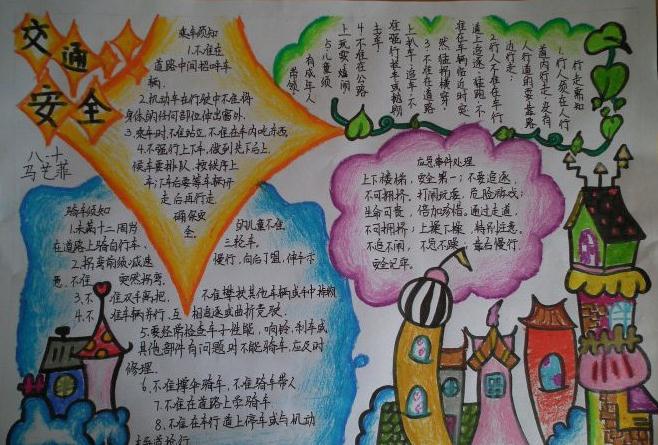 交通
安全
八、十
马芝菲
乘车须知
1.不准在
道路中间招呼车
辆.
2.机动车在行驶中不准将
身体的任何部位伸出窗外.
3.乘车时,不准站立,不准在车内吃东西
4.不强行上下车,做到先下后上,
候车要排队,按秩序上
车;下车后要等车辆开
走后再行走,
确保安
全。
行走需知
1.行人须在人行
道内行走,没有
人行道的要靠路
边行走.
2.行人不准在车行
道上追逐、猛跑,不
准在车辆临近时突
然猛拐横穿.
3.不准在道路
上扒车、追车,不
准强行拦车或抛掷
击车.
4.不准在公路
上玩耍嬉闹
5.儿童须
有成年人
带领.
应急事件处理
上下楼梯,安全第一;不要追逐,
不可拥挤.打闹玩耍,危险游戏;
生命可贵,倍加珍惜.通过走道,
不可拥挤;上操下操,特别注意.
不追不闹,不急不躁;靠右慢行,
安全记牢.
骑车须知
1.未满十二周岁的儿童不准
在道路上骑自行车、三轮车。
2.拐弯前须减速慢行,向后了望,伸手示
意,不准突然拐弯。
3.不准双手离把,不准攀扶其他车辆或手中持物
4.不准车辆并行、互相追逐或曲折竞驶.
5.要经常检查车子性能,响铃、制车或
其他部件有问题时不能骑车,应及时
修理.
6.不准撑伞骑车,不准骑车带人
7.不准在道路上学骑车
8.不准在车行道上停车或与机动
车争道抢行